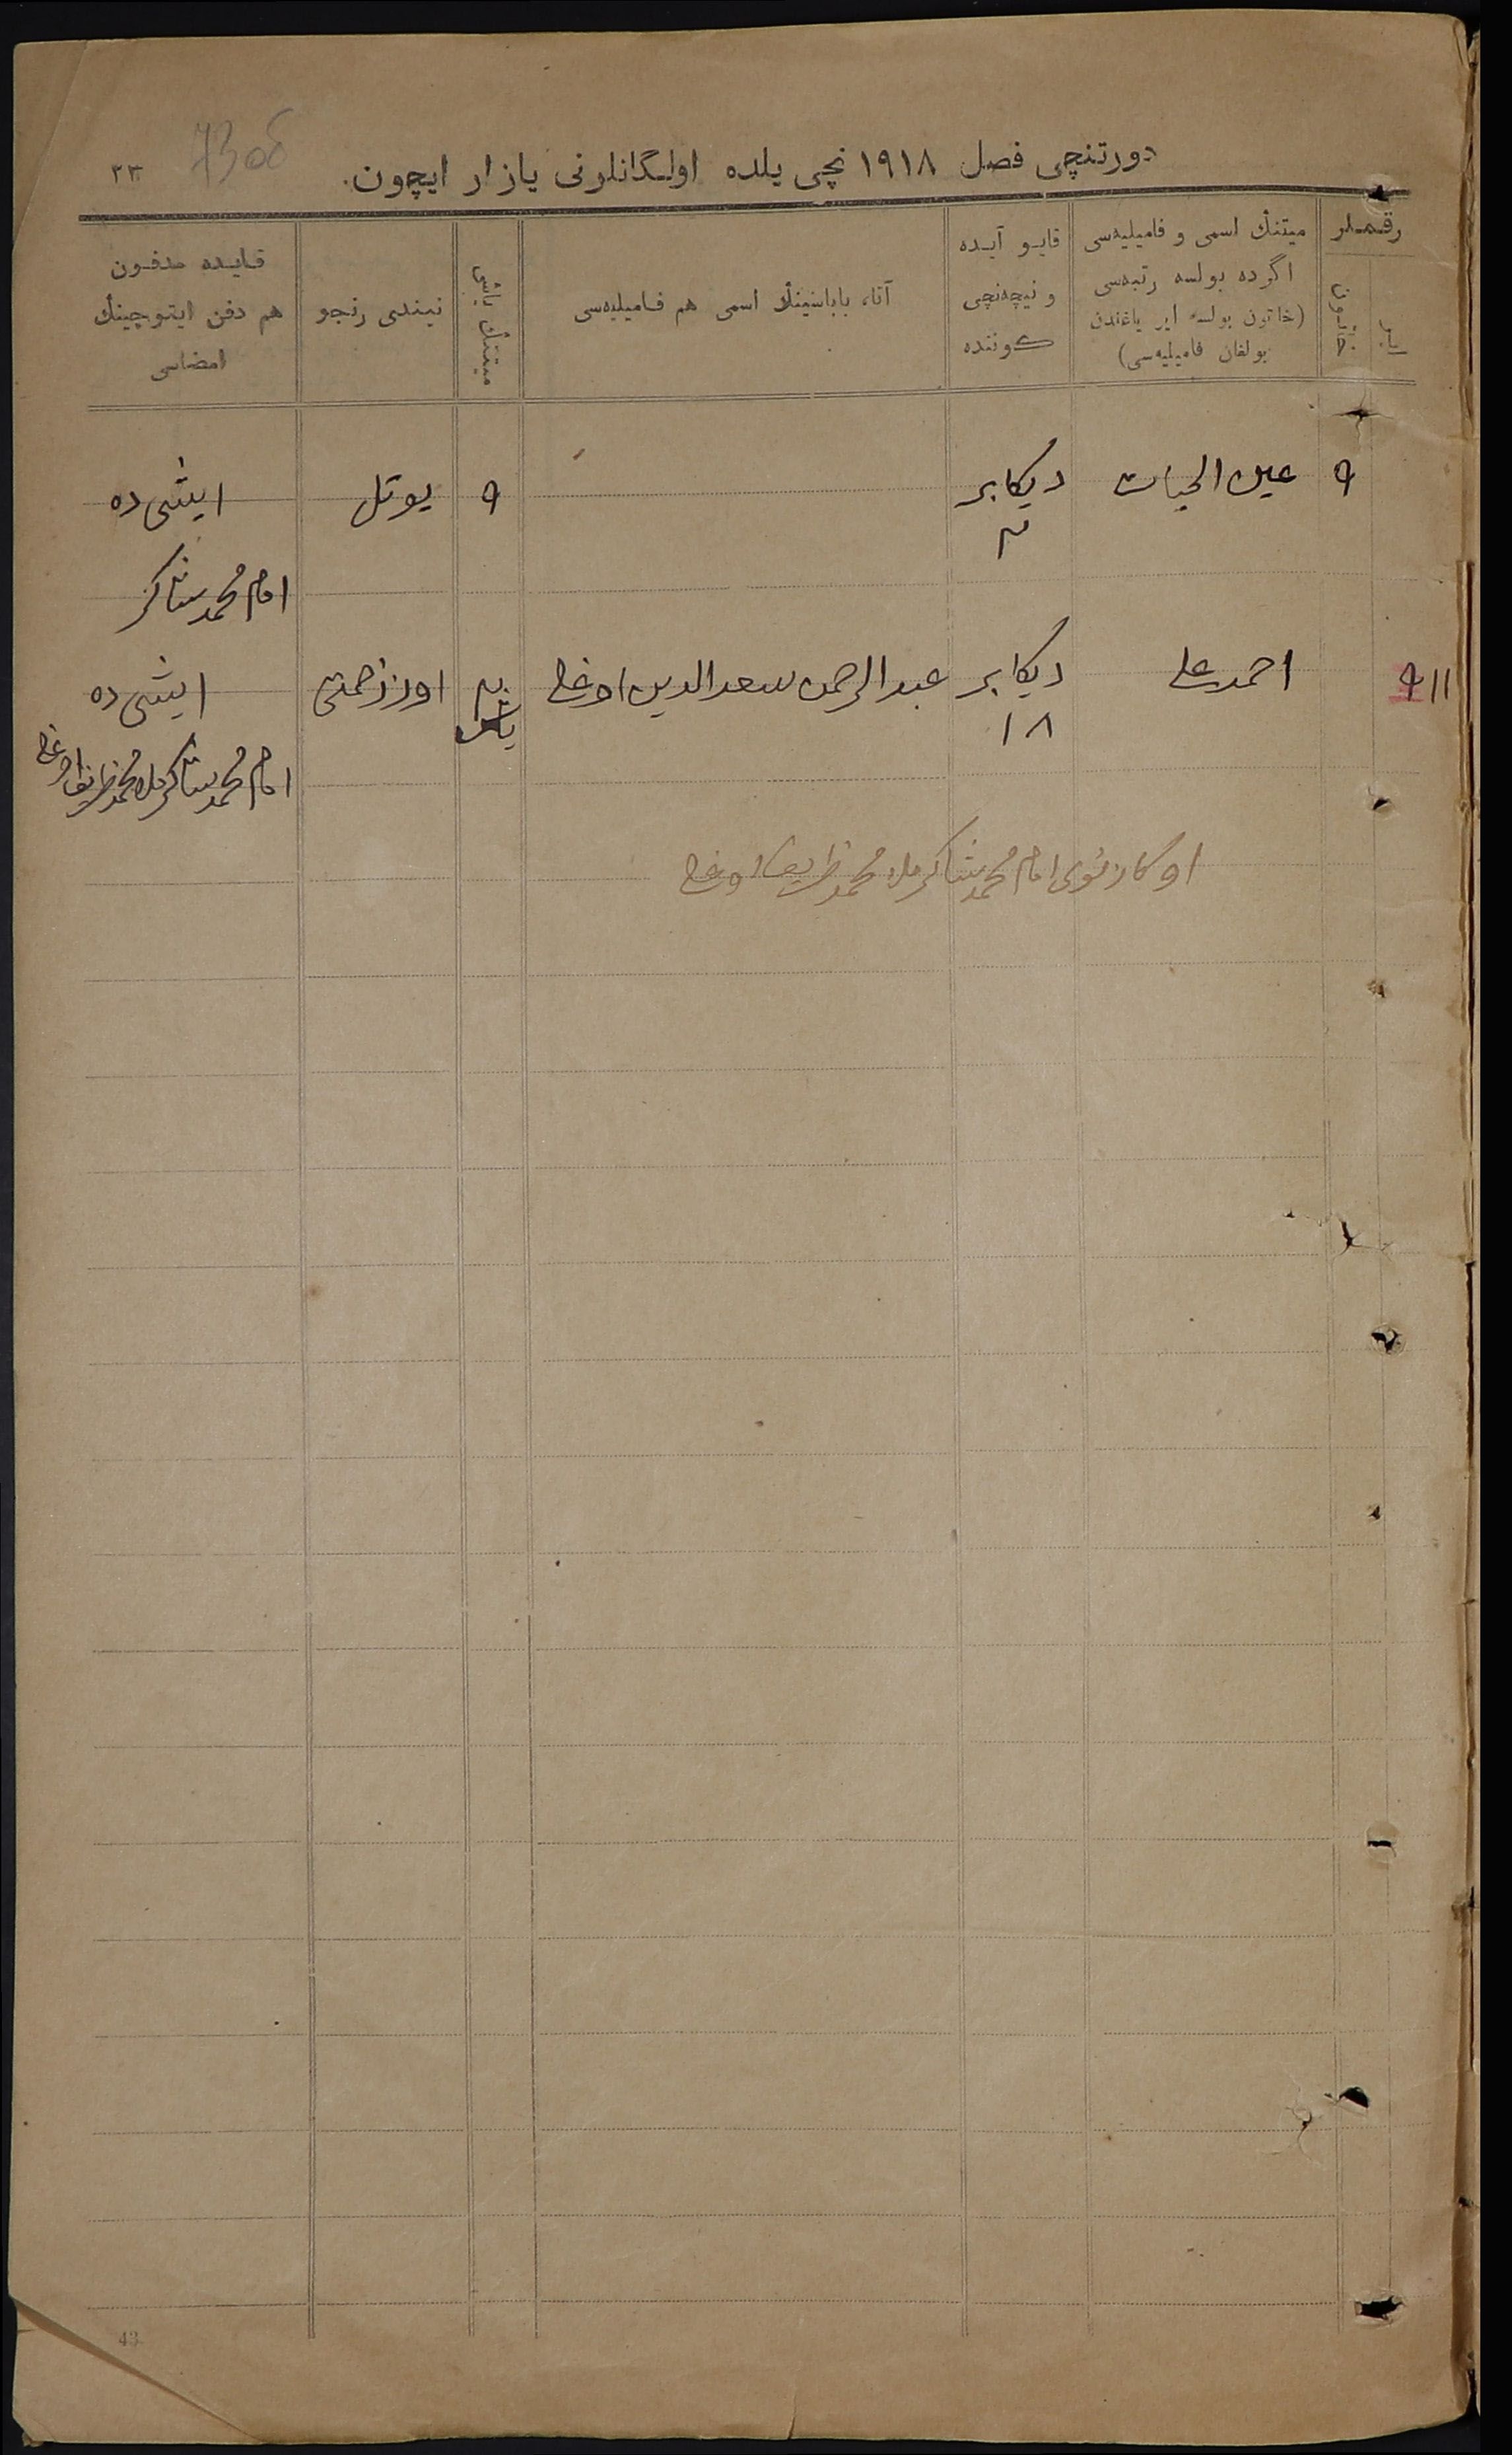 73об
٢٣
دورتنچی فصل ١٩١٨ نچی یلده اولگانلرنی یازار ایچون.
رقملر
میتنڭ اسمی و فامیلیه‌سی
اگرده بولسه رتبه‌سی
(خاتون بولسه ایر یاغندن
بولغان فامیلیه‌سی)
قایو آیده
و نیچه‌نچی
کوننده
آتا، باباسینڭ اسمی هم فامیلیه‌سی
میتنڭ یاشی
نیندی رنجو
قایده مدفون
هم دفن ایتوچینڭ
امضاسی
٩
عین الحیات
دیکابر
٣
٩
یوتل
ایشی ده
امام محمد شاکر
١١ ٩
احمد علی
دیکابر
١٨
عبدالرحمن سعدالدین اوغلی
یاش
اوز زحمتی
ایشی ده
امام محمد شاکر ملا محمد ظریف اوغلی
امام محمد شاکر ملا محمد ظریف اوغلی
43